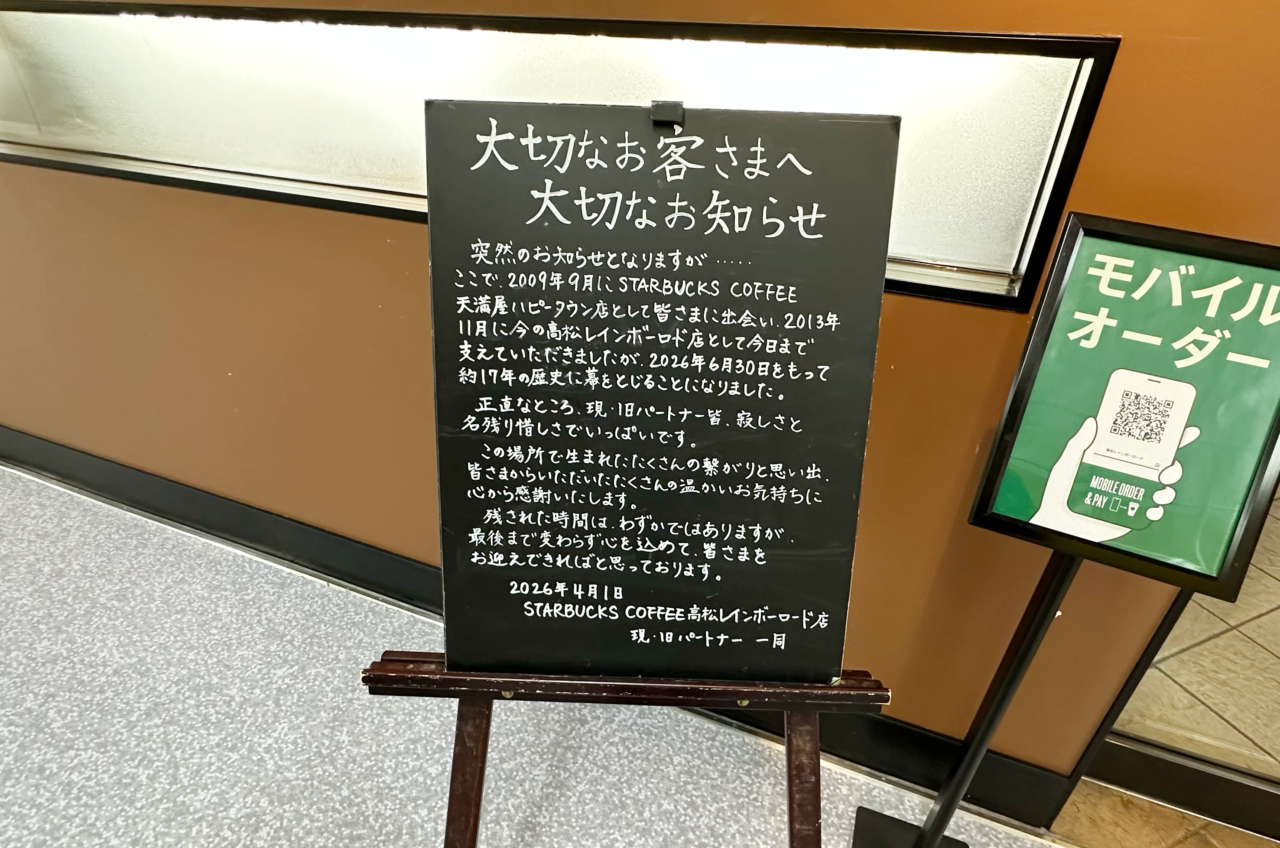 大切なお客さまへ
大切なお知らせ
突然のお知らせとなりますが‥‥‥
ここで、2009年9月にSTARBUCKS COFFEE
天満屋ハピータウン店として皆さまに出会い、2013年
11月に今の高松レインボーロード店として今日まで
支えていただきましたが、2026年6月30日をもって
約17年の歴史に幕をとじることになりました。
正直なところ、現・旧パートナー皆、寂しさと
名残り惜しさでいっぱいです。
この場所で生まれたたくさんの繋がりと思い出、
皆さまからいただいたたくさんの温かいお気持ちに
心から感謝いたします。
残された時間は、わずかではありますが、
最後まで変わらず心を込めて、皆さまを
お迎えできればと思っております。
2026年4月1日
STARBUCKS COFFEE高松レインボーロード店
現・旧パートナー 一同
モバイル
オーダー
高松レインボーロード
MOBILE ORDER
& PAY